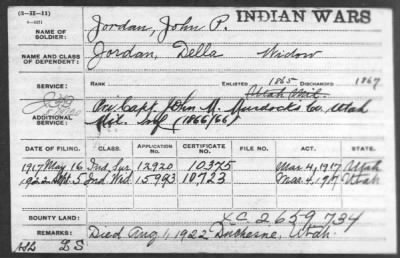 (3-II-11)
INDIAN WARS
NAME OF SOLDIER: Jordan, John P.
NAME AND CLASS OF DEPENDENT: Jordan, Della Widow
SERVICE: RANK ENLISTED 1865 DISCHARGED 1867
Utah
Capt John M. Murdock's Co. Utah
ADDITIONAL SERVICE: Mil. Inf (1866/66)
DATE OF FILING. CLASS. APPLICATION NO. CERTIFICATE NO. FILE NO. ACT. STATE.
1917 May 16 Ind Sur 12920 10375 Mar. 4, 1917 Utah
1922 Sept. 5 Ind Wid 15993 10723 Mar. 4, 1917 Utah
BOUNTY LAND: X.C. 2659734
REMARKS: Died Aug 1, 1922 Duchesne, Utah